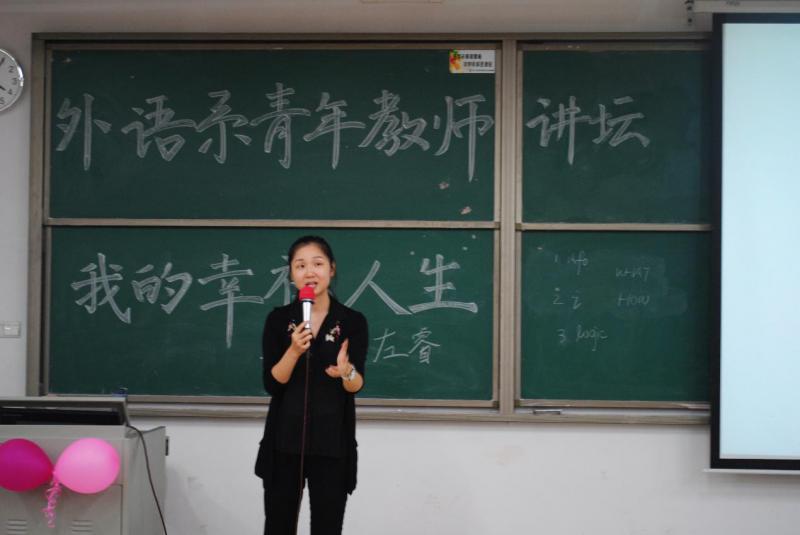 外语系青年教师讲坛
我的幸福人生
左睿
1. info WHAT
2. HOW
3. logic